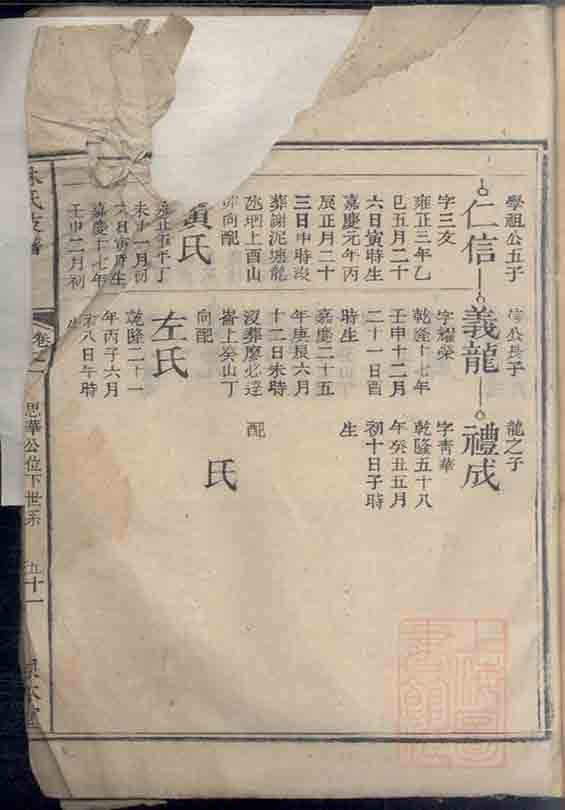 學祖公五子
仁信
字三友
雍正三年乙
巳五月二十
六日寅時生
嘉慶元年丙
辰正月二十
三日申時沒
葬謝泥塘龍
上酉山
卯向配
黃氏
雍正五年丁
未十一月初
六日寅時生
嘉慶十七年
壬申二月初
信公長子
義龍
字耀榮
乾隆十七年
壬申十二月
二十一日酉
時生
嘉慶二十五
年庚辰六月
十二日未時
沒葬廖必達
崙上癸山丁
向配
左氏
乾隆二十一
年丙子六月
八日午時
生
龍之子
禮成
字靑華
乾隆五十八
年癸丑五月
初十日子時
生
配
氏
林氏支譜
卷之
思華公位下世系
五十一
上海圖書館藏